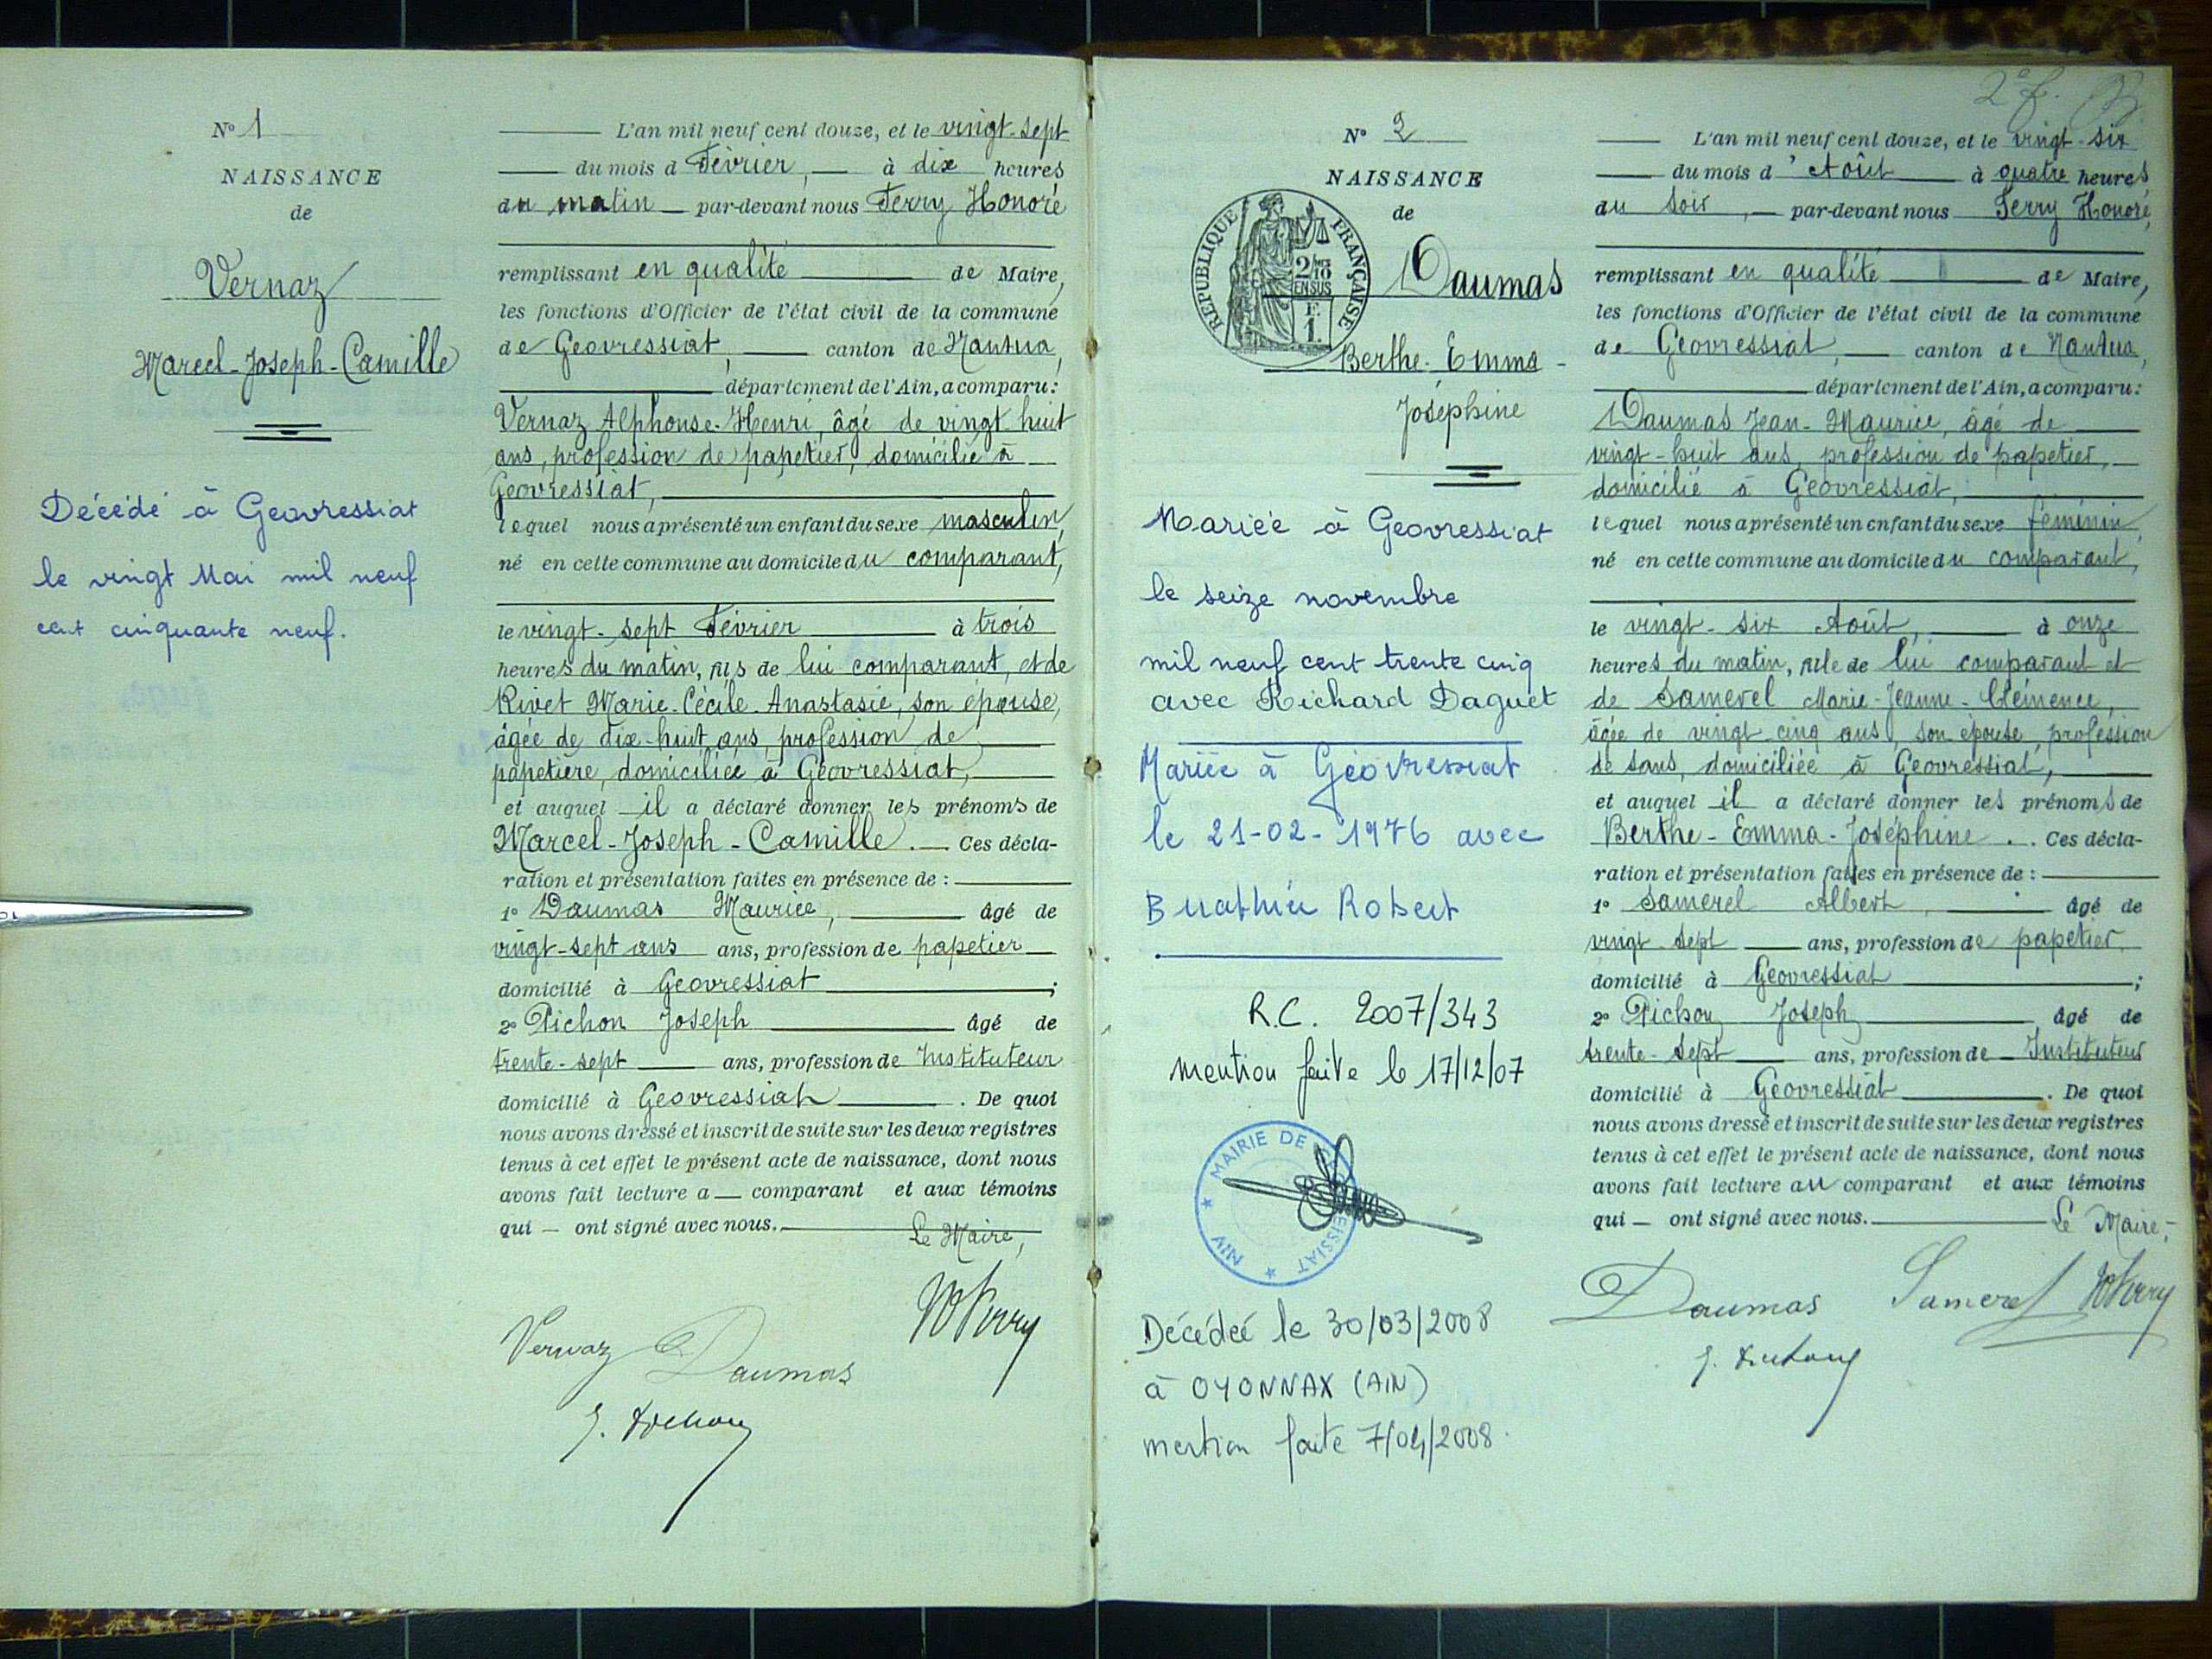 N° 1
NAISSANCE
de
Vernaz
Marcel-Joseph-Camille
Décédé à Geovressiat
le vingt Mai mil neuf
cent cinquante neuf.
L'an mil neuf cent douze, et le vingt-sept
du mois d Février, à dix heures
du matin par-devant nous Ferry Honoré
remplissant en qualité de Maire,
les fonctions d'Officier de l'état civil de la commune
de Geovressiat, canton de Nantua,
département de l'Ain, a comparu:
Vernaz Alphonse-Henri, âgé de vingt huit
ans, profession de papetier, domicilié à
Geovressiat,
lequel nous a présenté un enfant du sexe masculin,
né en cette commune au domicile du comparant,
le vingt-sept Février à trois
heures du matin, fils de lui comparant, et de
Rivet Marie-Cécile-Anastasie, son épouse,
âgée de dix-huit ans, profession de
papetière, domiciliée à Géovressiat,
et auquel il a déclaré donner les prénoms de
Marcel-Joseph-Camille. Ces décla-
ration et présentation faites en présence de :
1° Daumas Maurice, âgé de
vingt-sept ans ans, profession de papetier
domicilié à Geovressiat ;
2° Pichon Joseph âgé de
trente-sept ans, profession de Instituteur
domicilié à Geovressiat . De quoi
nous avons dressé et inscrit de suite sur les deux registres
tenus à cet effet le présent acte de naissance, dont nous
avons fait lecture a comparant et aux témoins
qui ont signé avec nous.
Le Maire,
Vernaz Daumas Ferry
J. Pichon
2e f.
N° 2
NAISSANCE
de
REPUBLIQUE FRANÇAISE
2/10 EN SUS
F. 1.
Daumas
Berthe-Emma-
Joséphine
Mariée à Geovressiat
le seize novembre
mil neuf cent trente cinq
avec Richard Daguet
Mariée à Géovressiat
le 21-02-1976 avec
Buathier Robert
R.C. 2007/343
mention faite le 17/12/07
MAIRIE DE GEOVREISSIAT AIN
Décédée le 30/03/2008
à OYONNAX (AIN)
mention faite 7/04/2008
L'an mil neuf cent douze, et le vingt-six
du mois d'Août à quatre heures
du soir, par-devant nous Ferry Honoré,
remplissant en qualité de Maire,
les fonctions d'Officier de l'état civil de la commune
de Géovressiat, canton de Nantua,
département de l'Ain, a comparu:
Daumas Jean-Maurice, âgé de
vingt-huit ans, profession de papetier,
domicilié à Géovressiat,
lequel nous a présenté un enfant du sexe féminin,
né en cette commune au domicile du comparant,
le vingt-six Août, à onze
heures du matin, fille de lui comparant et
de Samerel Marie-Jeanne-Clémence,
âgée de vingt cinq ans, son épouse, profession
de sans, domiciliée à Géovressiat,
et auquel il a déclaré donner les prénoms de
Berthe-Emma-Joséphine . Ces décla-
ration et présentation faites en présence de :
1° Samerel Albert, âgé de
vingt-sept ans, profession de papetier
domicilié à Geovressiat ;
2° Pichon Joseph âgé de
trente-sept ans, profession de Instituteur
domicilié à Géovressiat . De quoi
nous avons dressé et inscrit de suite sur les deux registres
tenus à cet effet le présent acte de naissance, dont nous
avons fait lecture au comparant et aux témoins
qui ont signé avec nous.
Le Maire,
Daumas Samerel Ferry
J. Pichon